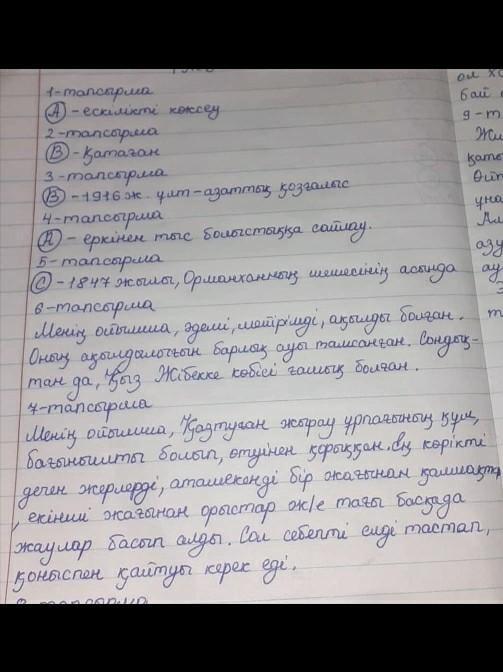 1-тапсырма
А - ескілікті көксеу
2-тапсырма
В - Қатаған
3-тапсырма
В - 1916 ж. ұлт-азаттық қозғалыс
4-тапсырма
А - еркінен тыс болыстыққа сайлау.
5-тапсырма
С - 1847 жылы, Орманханның шешесінің асында
6-тапсырма
Менің ойымша, әдемі, мейірімді, ақылды болған.
Оның ақылдалығын барлық ауы тамсанған. Сондық-
тан да, Қыз Жібекке көбісі ғашық болған.
7-тапсырма
Менің ойымша, Қазтуған жырау ұрпағының құл,
бағынышты болып, өтуінен қорыққан. Ең көрікті
деген жерлерді, атамекенді бір жағынан қалмақтар
, екінші жағынан орыстар ж/е тағы басқада
жаулар басып алды. Сол себепті елді тастап,
қоныспен қайтуы керек еді.
ол
бай
9-т
қаты
ұна
азу
ау